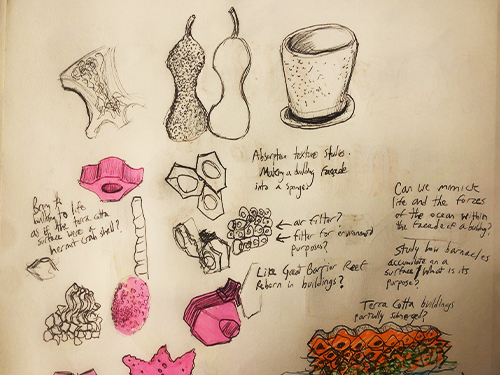 Absorption texture studies.
Making a building facade
into a sponge?
Bring a
building to life
as if the terra cotta
surface were a
hermit crab shell?
← air filter?
← filter for environmental
purposes?
Like Great Barrier Reef
Reborn in buildings?
Can we mimick
life and the forces
of the ocean within
the facade of a building?
Study how barnacles
accumulate on a
surface / What is its
purpose?
Terra Cotta buildings
partially submerged?